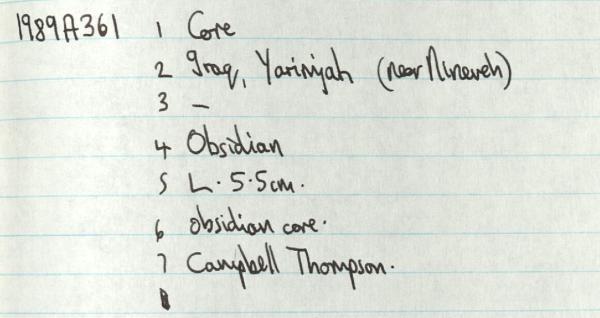 1989A361 1 Core
2 Iraq, Yarimjah (near Nineveh)
3 –
4 Obsidian
5 L. 5.5cm.
6 obsidian core.
7 Campbell Thompson.